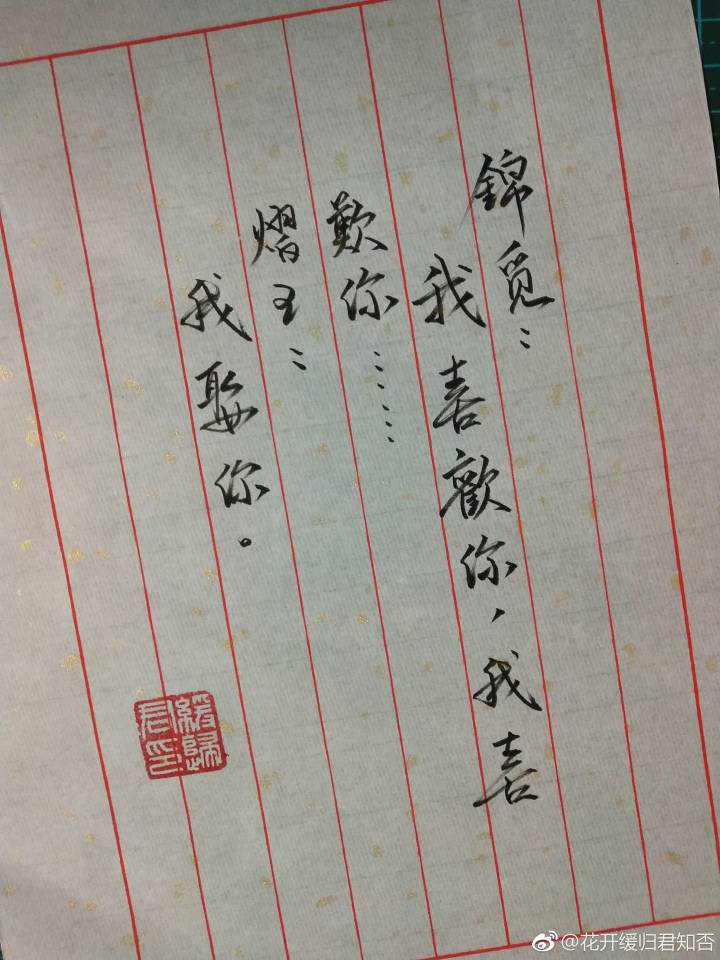 錦覓：
我喜歡你，我喜
歡你……
熠王：
我娶你。
緩歸
君印
@花开缓归君知否